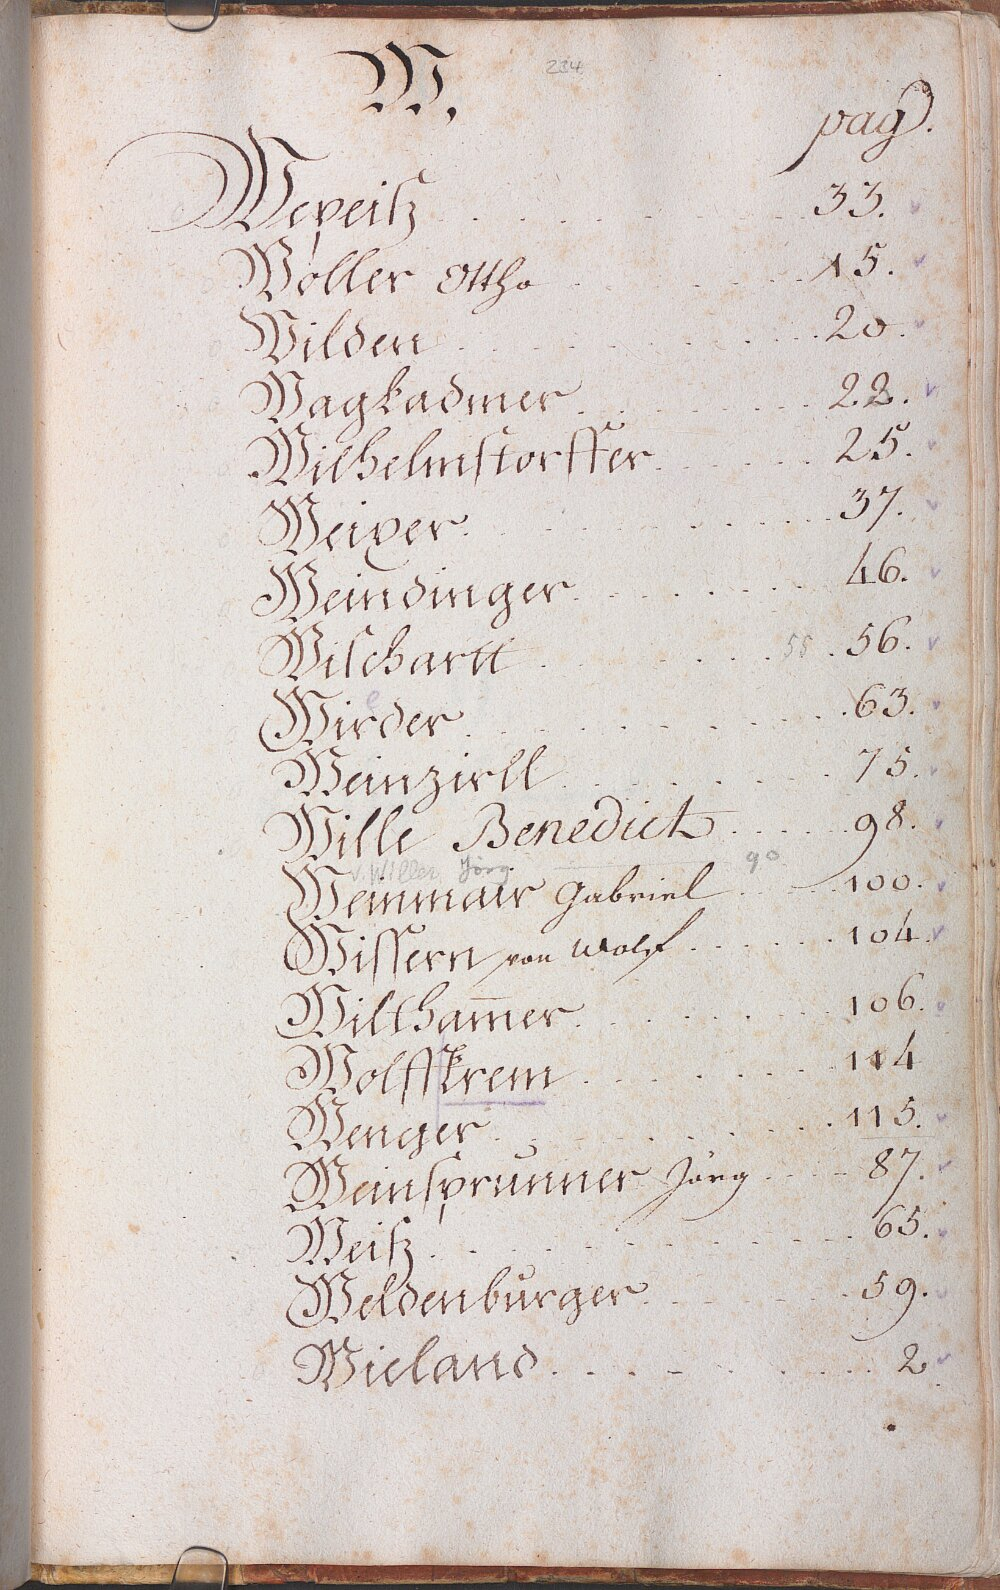 234
W.
pag.
Wexeiß . . . . . . . . 33.
Woller Ottho . . . . . . . 15.
Wilden . . . . . . . . 20.
Wagkadmer . . . . . . 22.
Wilhelmstorffer . . . . . 25.
Weixer . . . . . . . . 37.
Weindinger . . . . . . . 46.
Wischartt . . . . . . 55 . 56.
Wirder . . . . . . . . 63.
Weinzirll . . . . . . . 75.
Wille Benedict . . . . . 98.
v. Willen Jörg 90
Weinmair Gabriel . . . . 100.
Wissern von Wolf . . . . . 104.
Wiltham̄er . . . . . . . 106.
Wolffskrem . . . . . . . 114
Wenger . . . . . . . . 115.
Weinsprunner Jörg . . . . 87.
Weiß . . . . . . . . . 65.
Weldenburger . . . . . . 59.
Wieland . . . . . . . . 2.